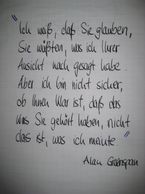 "Ich weiß, daß Sie glauben,
Sie wüßten, was ich Ihrer
Ansicht nach gesagt habe.
Aber ich bin nicht sicher,
ob Ihnen klar ist, daß das
was Sie gehört haben, nicht
das ist, was ich meinte"
Alan Greenspan